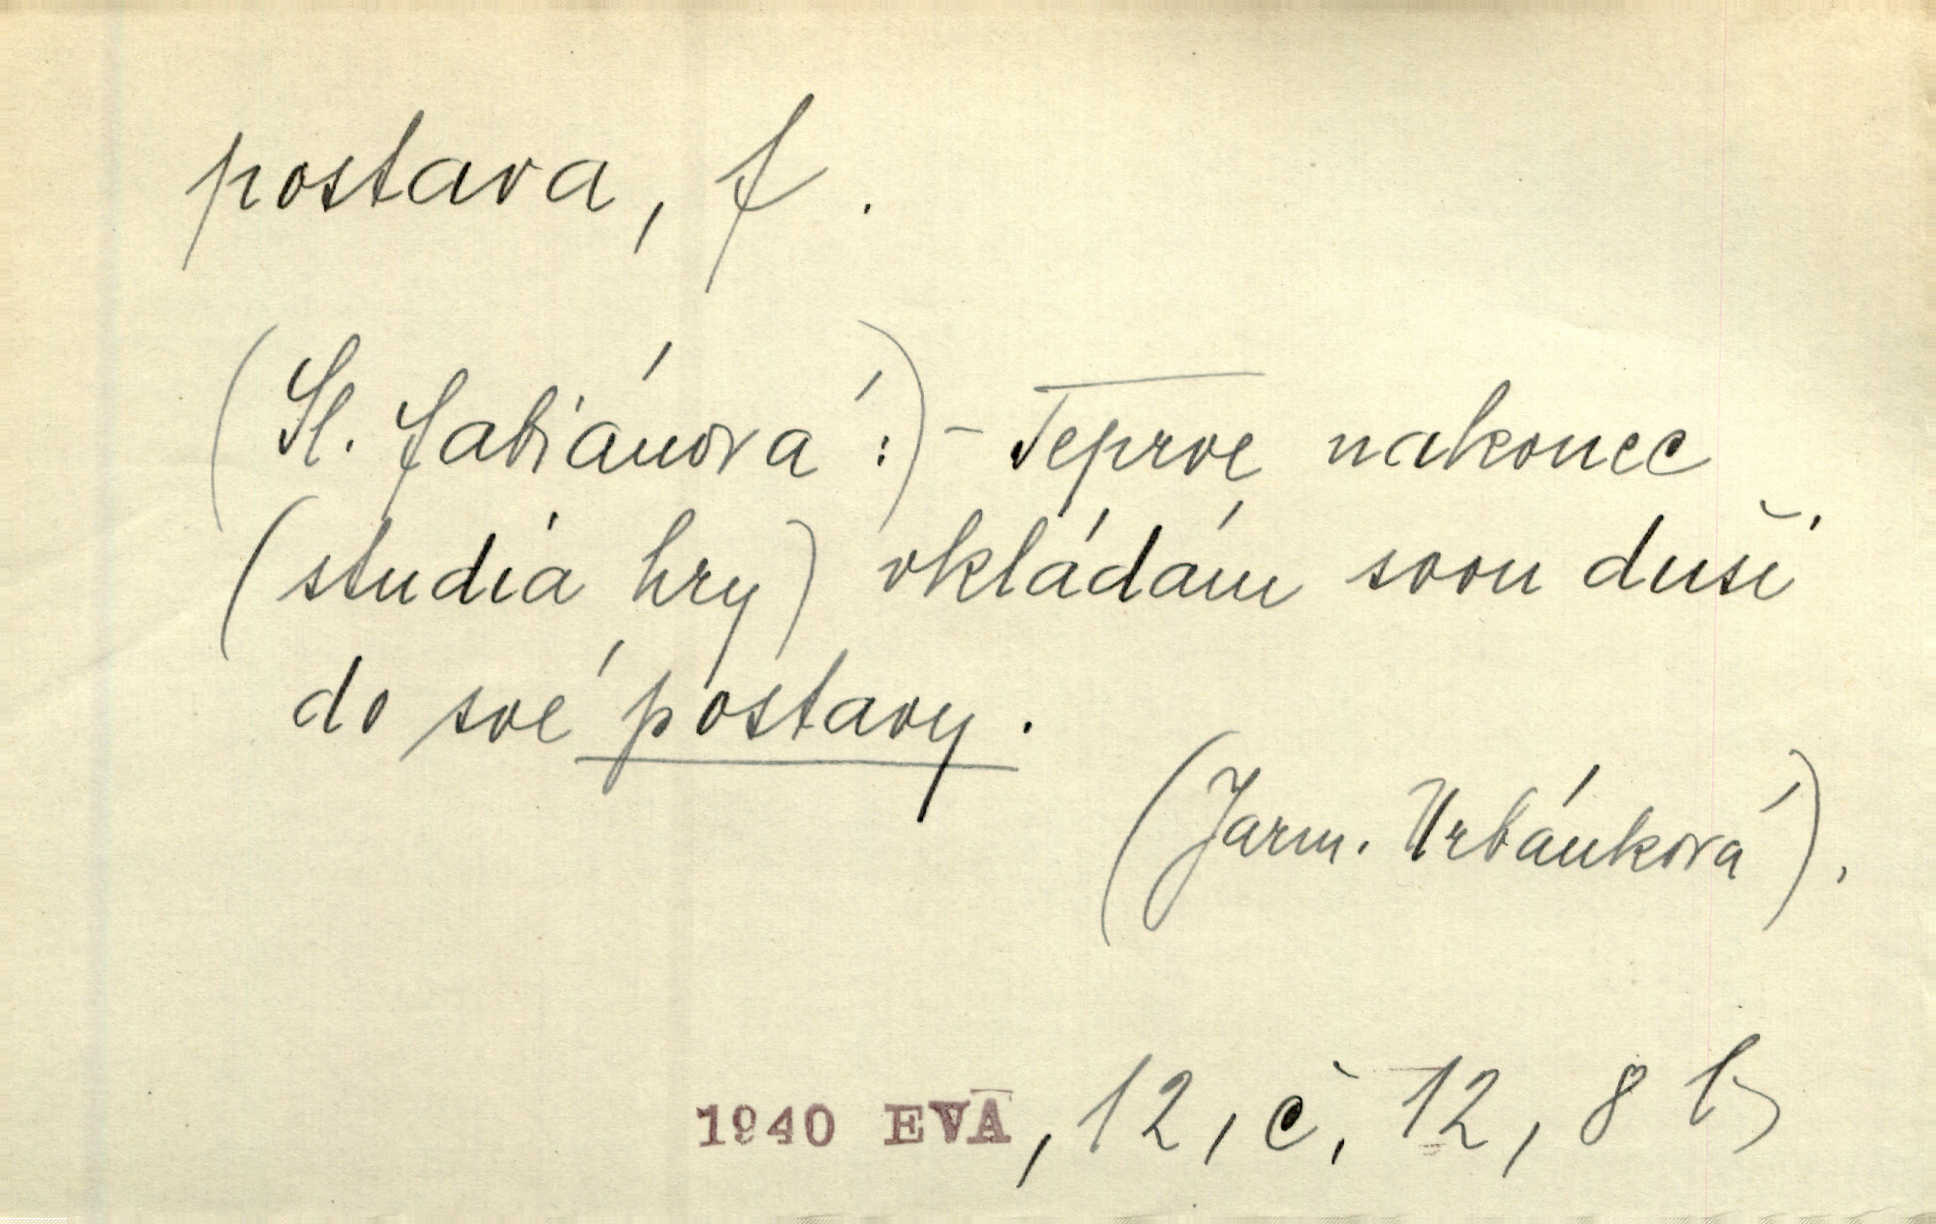 postava, f.
(Sl. Fabiánová:) - Teprve nakonec
(studia hry) vkládám svou duši
do své postavy.
(Jarm. Urbánková).
1940 EVA, 12, č. 12, 8 b